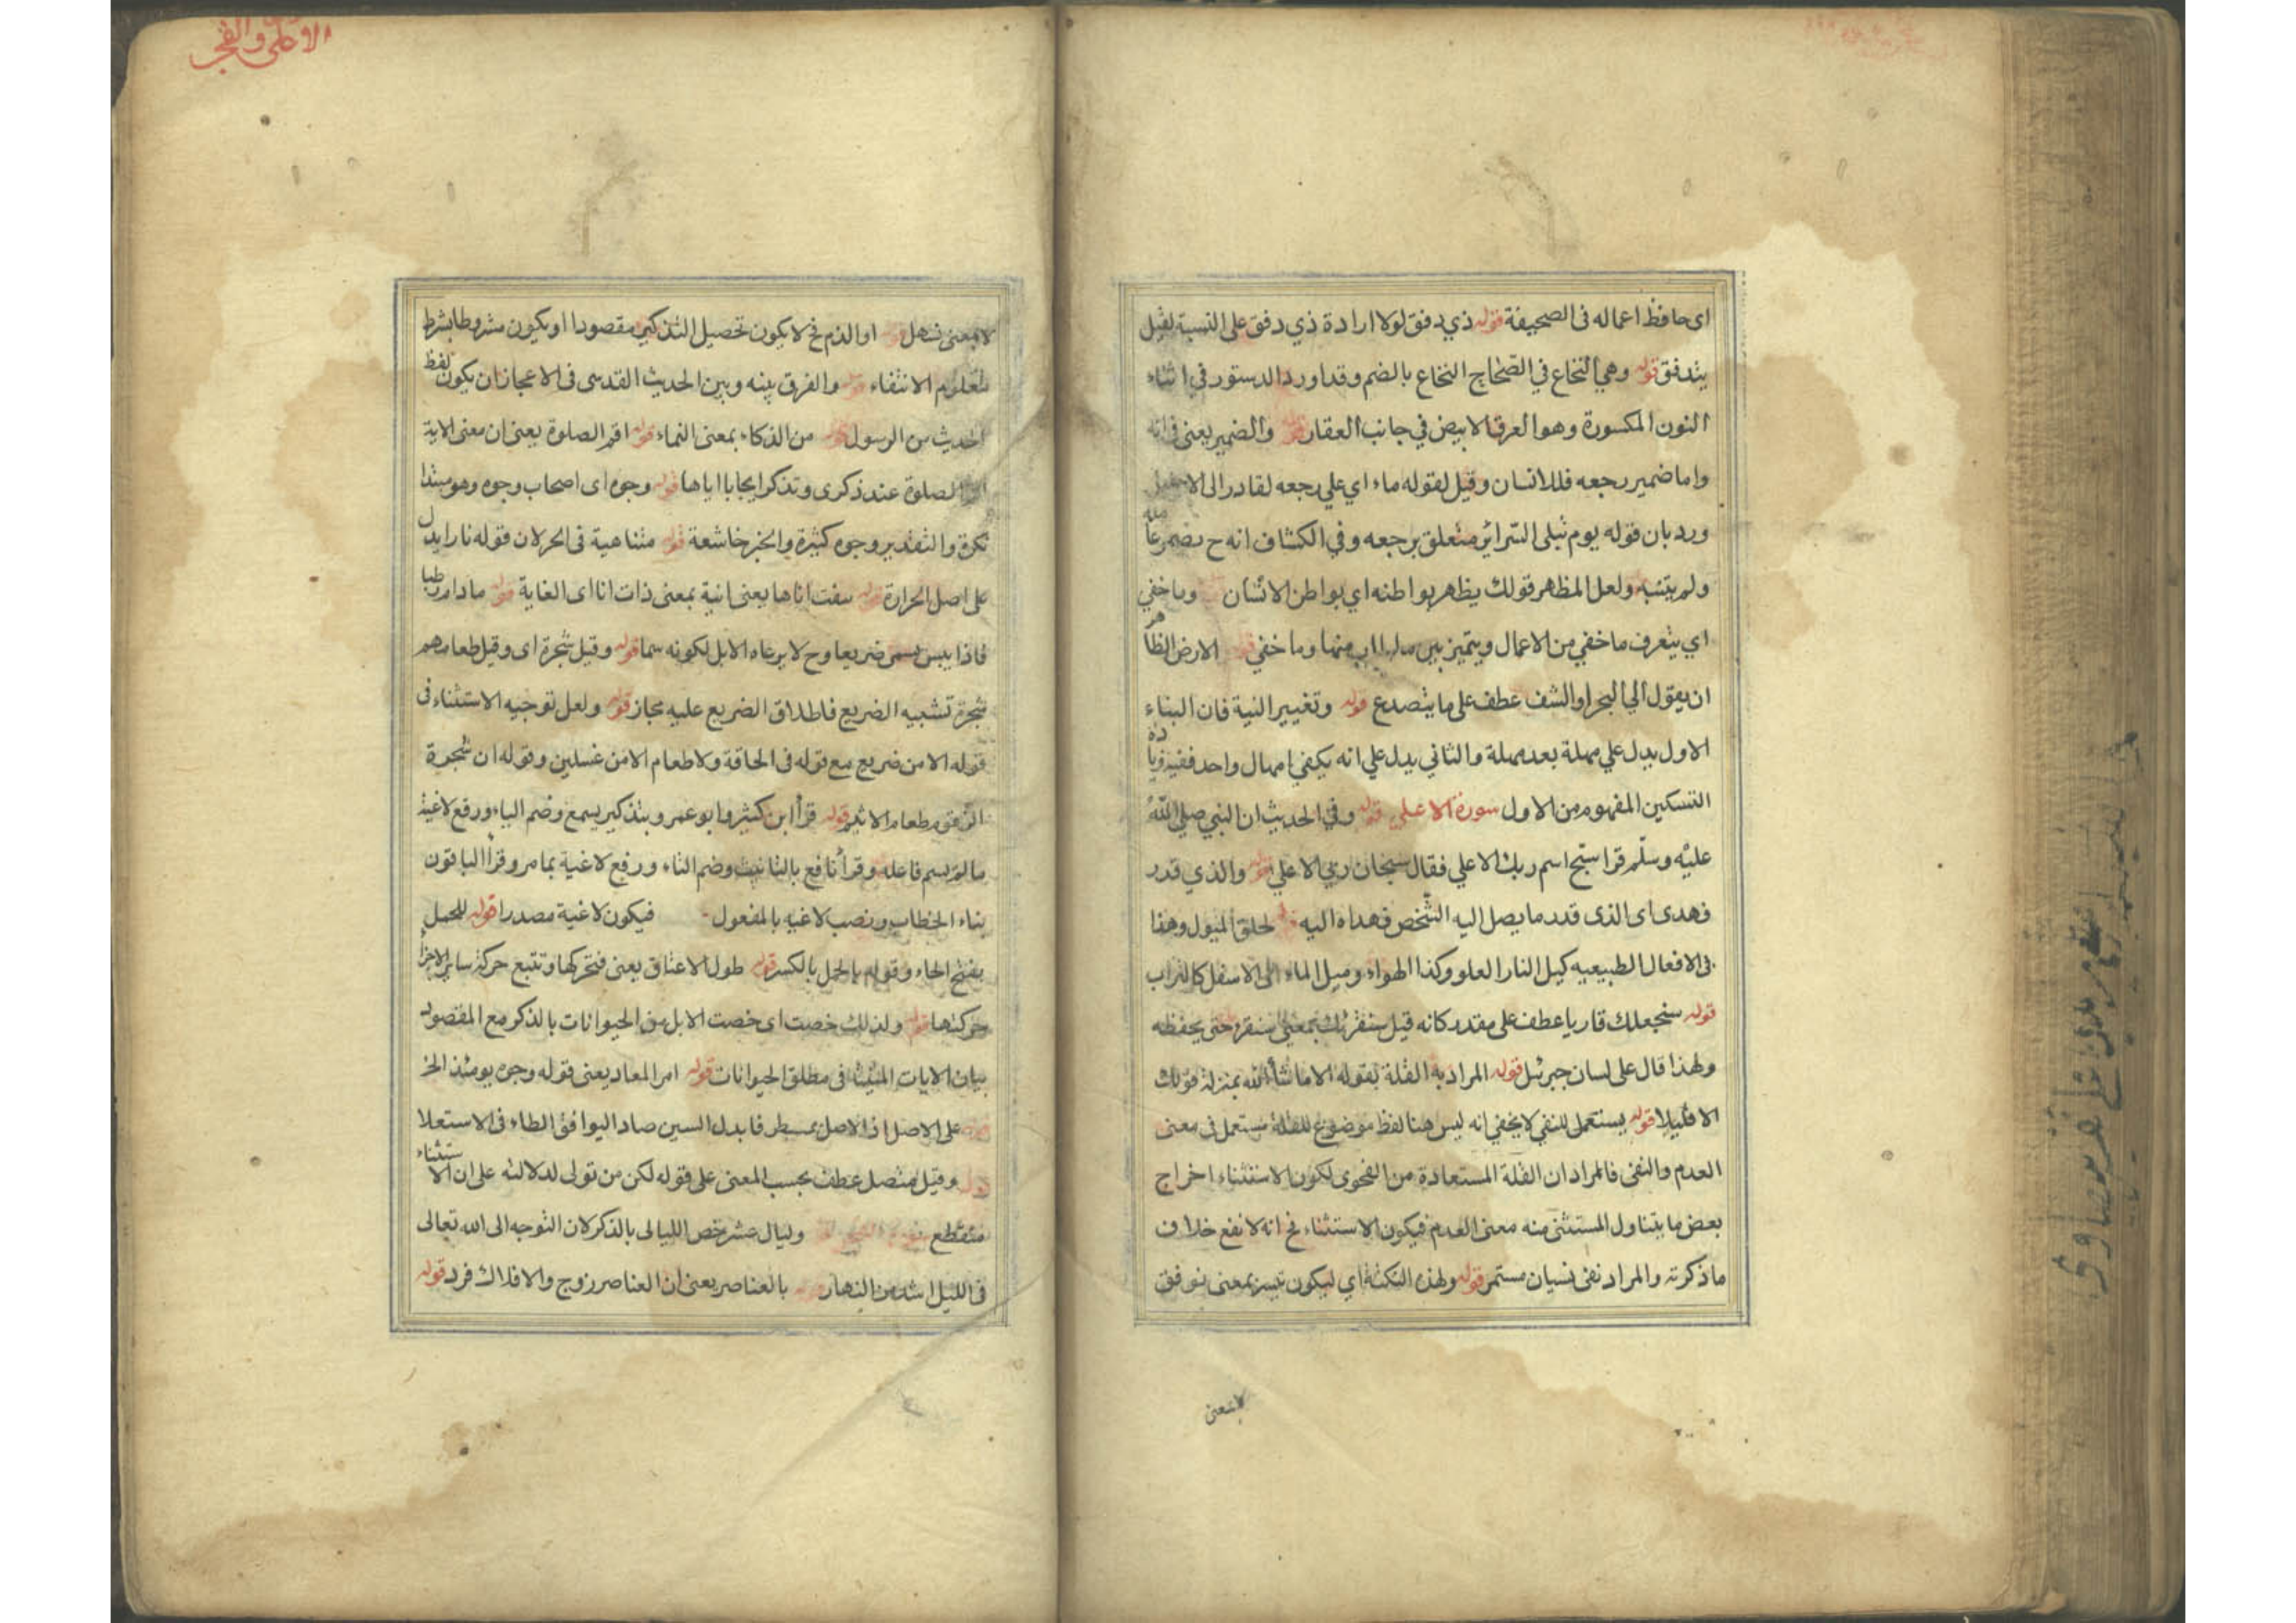 اى حافظ اعماله فى الصحيفة قوله ذي دفق لولا ارادة ذي دفق على النسبة لقيل
يتدفق قوله وهي النخاع في الصحاح النخاع بالضم وقد اورد الدستور في اثناء
النون المكسورة وهو العرق الابيض في جانب العقار قوله والضمير يعنى فى انه
واما ضمير رجعه فللانسان وقيل لقوله ماء اي علي رجعه لقادر الى
ورد بان قوله يوم تبلى السرائر متعلق برجعه وفي الكشاف انه ح
ولم ولعل المظهر قولك يظهر بواطنه اي بواطن الانسان وما خفي
اي يتعرف ما خفي من الاعمال ويتميز بين منها وما خفي قوله الارض الظاهر
ان يقول الي البحر او الشف عطف على ما يتصدع قوله وتغيير النية فان البناء
الاول يدل علي مهلة بعد مهلة والثاني يدل علي انه يكفي امهال واحد ففيه زيادة
التسكين المفهوم من الاول سورة الاعلى قوله وفي الحديث ان النبي صلي الله
عليه وسلم قرا سبح اسم ربك الاعلي فقال سبحان ربي الاعلي قوله والذي قدر
فهدى اى الذى قدر ما يصل اليه الشخص فهداه اليه قوله لخلق الميول وهذا
فى الافعال الطبيعيه كميل النار العلو وكذا الهواء وميل الماء الى الاسفل كالتراب
قوله سنجعلك قاريا عطف على مقدر كانه قيل سنقرئك بمعنى سنقره حتى يحفظه
ولهذا قال على لسان جبرئيل قوله المراد به القلة لقوله الا ما شاء الله بمنزلة قولك
الا قليلا قوله يستعمل للنفي لا يخفي انه ليس هنا لفظ موضوع للقلة مستعمل فى معنى
العدم والنفى فالمراد ان القلة المستعادة من الفحوى لكون الاستثناء اخراج
بعض ما يتناول المستثنى منه معنى العدم فيكون الاستثناء فح انه لا نفع خلاف
ما ذكرته والمراد نفى نسيان مستمر قوله ولهذه النكتة اي ليكون نيسر بمعنى نوفق
لا بمعنى
الاعلى والفجر
لا بمعنى نسهل قوله او الذم فح لا يكون تحصيل التذكير مقصودا او يكون مشروطا بشرط
معلوم الانتفاء قوله والفرق بينه وبين الحديث القدسى فى الاعجاز ان يكون لفظ
الحديث من الرسول قوله من الذكاء بمعنى النماء قوله اقم الصلوة يعنى ان معنى الاية
اقم الصلوة عند ذكرى وتذكر ايجابا اياها قوله وجوه اى اصحاب وجوه وهو مبتدا
نكرة والتقدير وجوه كثيرة والخبر خاشعة قوله متناهية فى الحر لان قوله نارا يدل
على اصل الحرارة قوله بلغت اناها يعنى انية بمعنى ذات انا اى الغاية قوله ما دام رطبا
فاذا يبس يسمى ضريعا وح لا يرعاه الابل لكونه سما قوله وقيل شجرة اى وقيل طعامهم
شجرة تشبيه الضريع فاطلاق الضريع عليه مجاز قوله ولعل توجيه الاستثناء فى
قوله الا من ضريع مع قوله فى الحاقة ولا طعام الا من غسلين وقوله ان شجرة
الزقوم طعام الاثيم قوله قرأ ابن كثير وابو عمرو بتذكير يسمع وضم الياء ورفع لاغية
ما لم يسم فاعله وقرأ نافع بالتانيث وضم التاء ورفع لاغية بما مر وقرأ الباقون
بتاء الخطاب ونصب لاغيه بالمفعول فيكون لاغية مصدرا قوله للحمل
بفتح الحاء وقوله بالحمل بالكسر قوله طول الاعناق يعنى فتحركها وتتبع حركة سائر الاجزاء
حركتها قوله ولذلك خصت اى خصت الابل من الحيوانات بالذكر مع المقصود
بيان الايات المنبثة فى مطلق الحيوانات قوله امر المعاد يعنى قوله وجوه يومئذ الخ
قوله على الاصل اذ الاصل بمسيطر فابدل السين صادا ليوافق الطاء فى الاستعلا
قوله وقيل متصل عطف بحسب المعنى على قوله لكن من تولى لدلالته على ان الاستثناء
منقطع وليال عشر خص الليالى بالذكر لان التوجه الى الله تعالى
فى الليل اشد من النهار قوله بالعناصر يعنى ان العناصر زوج والافلاك فرد قوله